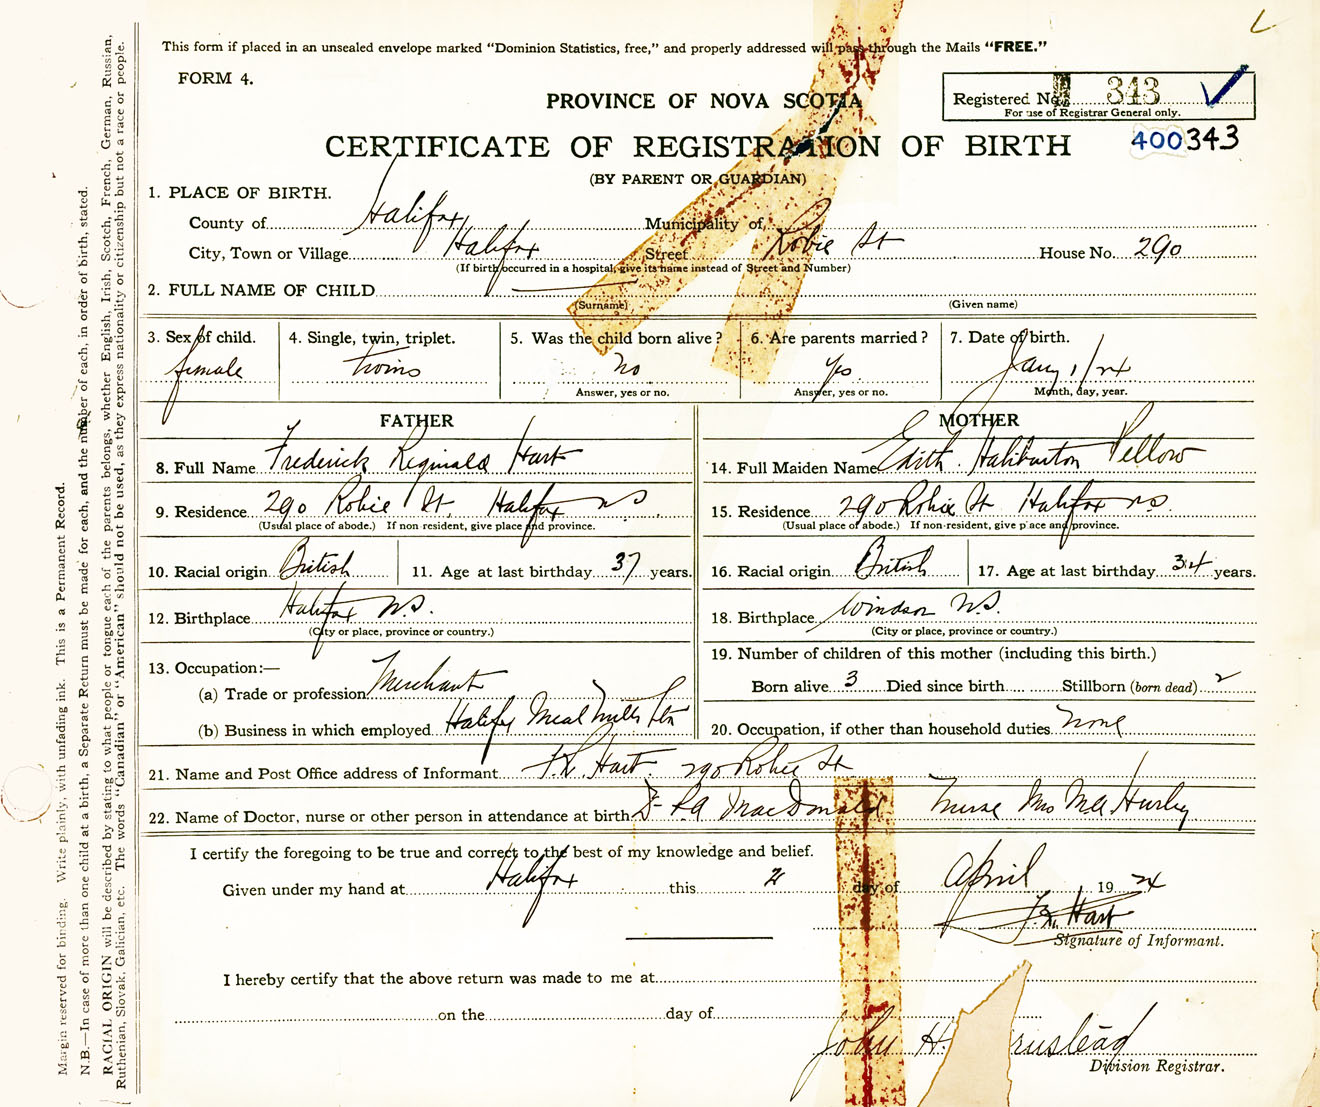 This form if placed in an unsealed envelope marked "Dominion Statistics, free," and properly addressed will pass through the Mails "FREE."
FORM 4.
PROVINCE OF NOVA SCOTIA
Registered No. 343
For use of Registrar General only.
CERTIFICATE OF REGISTRATION OF BIRTH
400343
(BY PARENT OR GUARDIAN)
1. PLACE OF BIRTH.
County of Halifax Municipality of
City, Town or Village Halifax Street Robie St House No. 290
(If birth occurred in a hospital, give its name instead of Street and Number)
2. FULL NAME OF CHILD
(Surname) (Given name)
3. Sex of child. 4. Single, twin, triplet. 5. Was the child born alive? 6. Are parents married? 7. Date of birth.
female twins no Yes Jany 1/24
Answer, yes or no. Answer, yes or no. Month, day, year.
FATHER MOTHER
8. Full Name Frederick Reginald Hart 14. Full Maiden Name Edith Haliburton Pellow
9. Residence 290 Robie St. Halifax NS 15. Residence 290 Robie St Halifax NS.
(Usual place of abode.) If non-resident, give place and province. (Usual place of abode.) If non-resident, give place and province.
10. Racial origin British 11. Age at last birthday 37 years. 16. Racial origin British 17. Age at last birthday 34 years.
12. Birthplace Halifax N.S. 18. Birthplace Windsor N.S.
(City or place, province or country.) (City or place, province or country.)
13. Occupation:— 19. Number of children of this mother (including this birth.)
(a) Trade or profession Merchant Born alive 3 Died since birth Stillborn (born dead) 2
(b) Business in which employed Halifax Meal Mills Ltd 20. Occupation, if other than household duties none
21. Name and Post Office address of Informant F.R. Hart. 290 Robie St
22. Name of Doctor, nurse or other person in attendance at birth Dr MacDonald Nurse Mrs Hurley
I certify the foregoing to be true and correct to the best of my knowledge and belief.
Given under my hand at Halifax this 2 day of April, 1924
F.R. Hart
Signature of Informant.
I hereby certify that the above return was made to me at
on the day of
John H.
Division Registrar.
Margin reserved for binding. Write plainly, with unfading ink. This is a Permanent Record.
N.B.—In case of more than one child at a birth, a Separate Return must be made for each, and the number of each, in order of birth, stated.
RACIAL ORIGIN will be described by stating to what people or tongue each of the parents belongs, whether English, Irish, Scotch, French, German, Russian,
Ruthenian, Slovak, Galician, etc. The words "Canadian" or "American" should not be used, as they express nationality or citizenship but not a race or people.